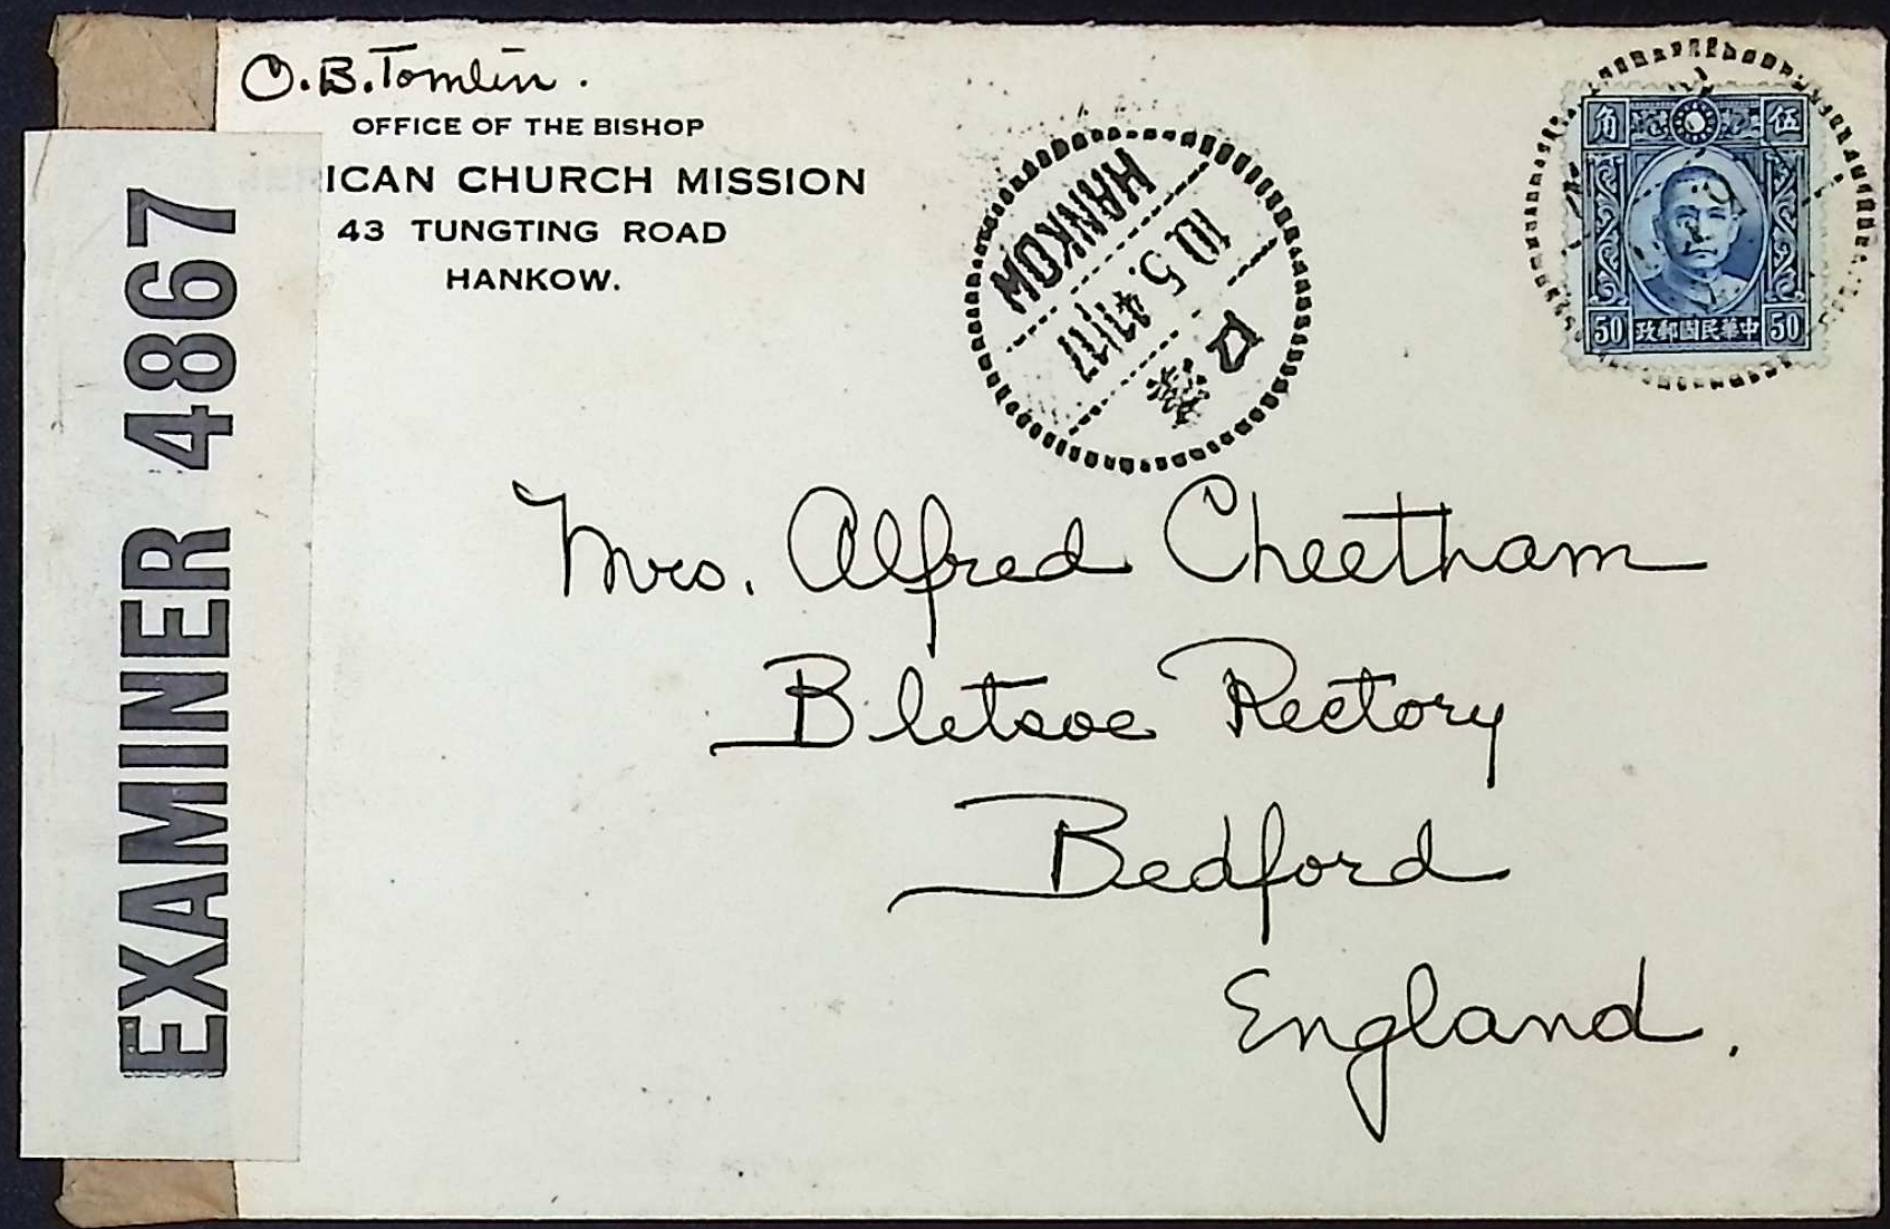 O. B. Tomlin.
OFFICE OF THE BISHOP
ICAN CHURCH MISSION
43 TUNGTING ROAD
HANKOW.
EXAMINER 4867
HANKOW
10.5.41/17
漢口
角 伍
50 政郵國民華中 50
Mrs. Alfred Cheetham
Bletsoe Rectory
Bedford
England.